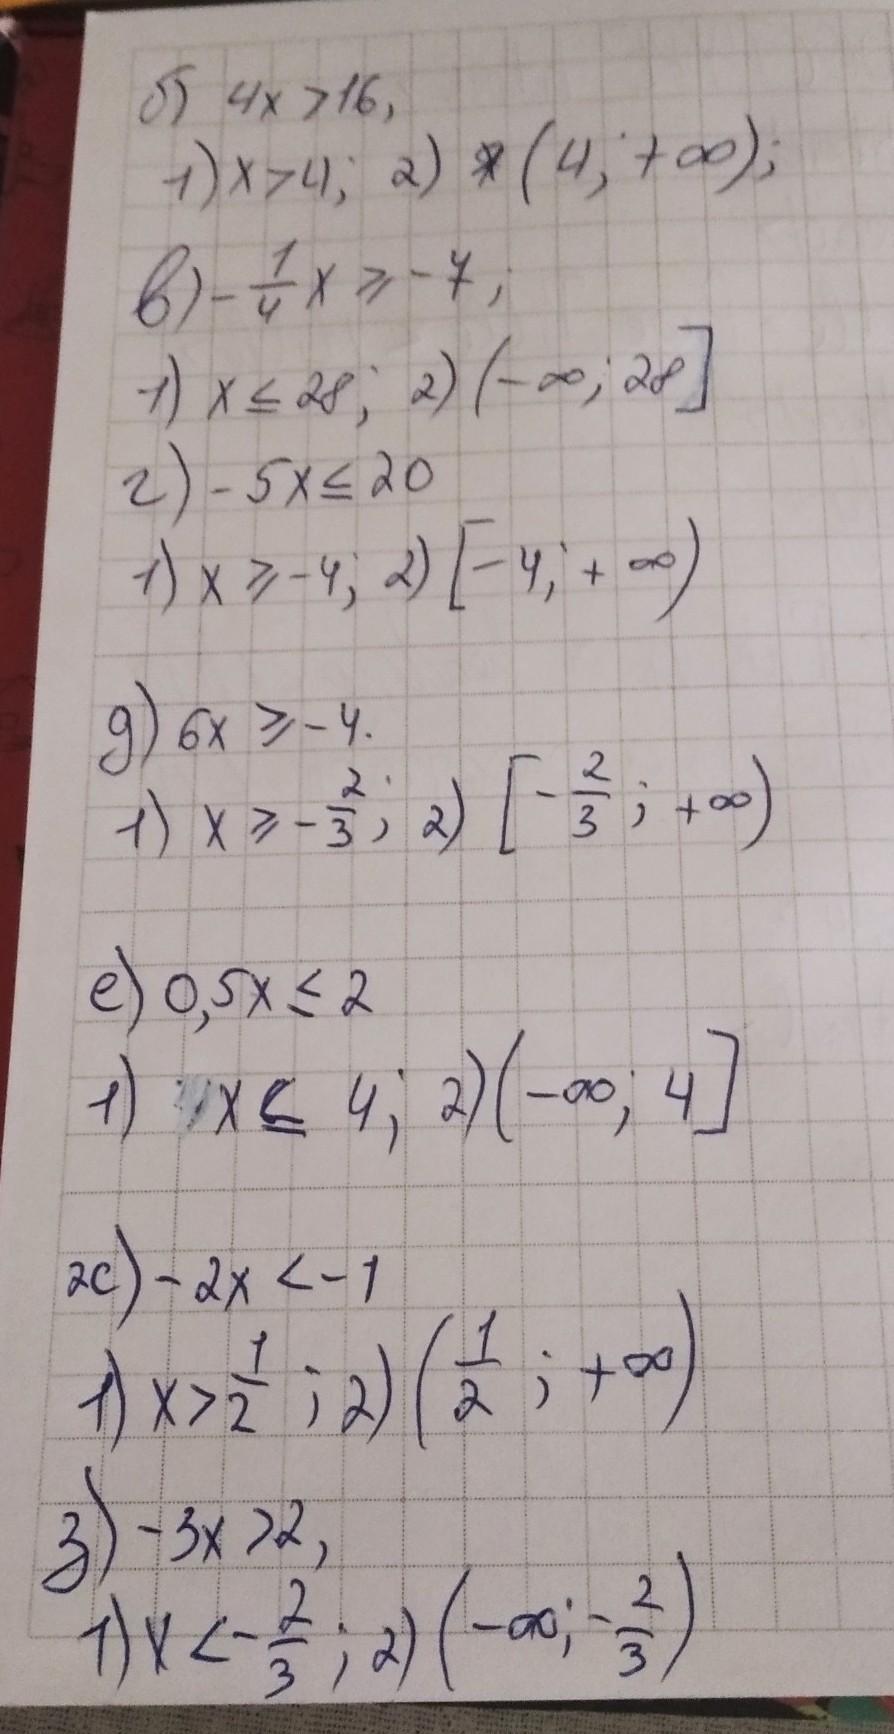 б) 4x > 16,
1) x > 4; 2) (4; +∞);
в) -1/4 x ⩾ -7;
1) x ≤ 28; 2) (-∞; 28]
г) -5x ≤ 20
1) x ⩾ -4; 2) [-4; +∞)
д) 6x ⩾ -4.
1) x ⩾ -2/3; 2) [-2/3; +∞)
е) 0,5x ≤ 2
1) x ≤ 4; 2) (-∞; 4]
ж) -2x < -1
1) x > 1/2; 2) (1/2; +∞)
з) -3x > 2,
1) x < -2/3; 2) (-∞; -2/3)